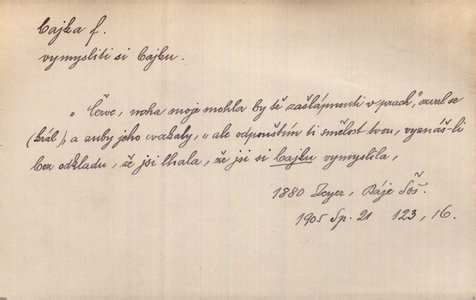 bajka f.
vymysliti si bajku.
„ Červe, noha moje mohla by tě zašlápnouti v prach," ozval se
(král), a zuby jeho cvakaly, „ ale odpouštím ti smělost tvou, vyznáš-li
bez odkladu, že jsi lhala, že jsi si bajku vymyslila,
1880 Zeyer, Báje Šoš.
1905 Sp. 21 123, 16.